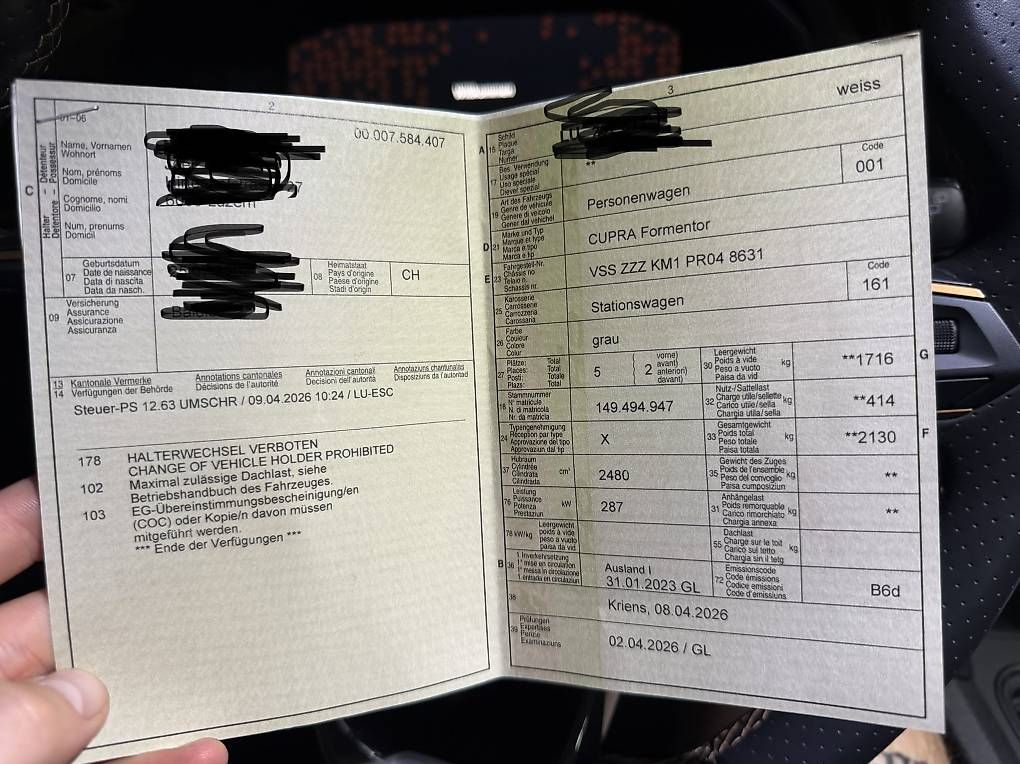 2
01-06
Halter – Détenteur
Detentore – Possessur
C
Name, Vornamen
Wohnort
Nom, prénoms
Domicile
Cognome, nomi
Domicilio
Num, prenums
Domicil
00.007.584.407
Luzern
07
Geburtsdatum
Date de naissance
Data di nascita
Data da nasch.
08
Heimatstaat
Pays d'origine
Paese d'origine
Stadi d'origin
CH
09
Versicherung
Assurance
Assicurazione
Assicuranza
13
14
Kantonale Vermerke
Verfügungen der Behörde
Annotations cantonales
Décisions de l'autorité
Annotazioni cantonali
Decisioni dell'autorità
Annotaziuns chantunalas
Disposiziuns da l'autoritad
Steuer-PS 12.63 UMSCHR / 09.04.2026 10:24 / LU-ESC
178 HALTERWECHSEL VERBOTEN
CHANGE OF VEHICLE HOLDER PROHIBITED
102 Maximal zulässige Dachlast, siehe
Betriebshandbuch des Fahrzeuges.
103 EG-Übereinstimmungsbescheinigung/en
(COC) oder Kopie/n davon müssen
mitgeführt werden.
*** Ende der Verfügungen ***
3
weiss
A 15
Schild
Plaque
Targa
Numer
17
Bes. Verwendung
Usage spécial
Uso speciale
Diever spezial
**
19
Art des Fahrzeugs
Genre de véhicule
Genere di veicolo
Gener dal vehichel
Personenwagen
Code
001
D 21
Marke und Typ
Marque et type
Marca e tipo
Marca e tip
CUPRA Formentor
E 23
Fahrgestell-Nr.
Châssis no
Telaio n.
Schassis nr.
VSS ZZZ KM1 PR04 8631
25
Karosserie
Carrosserie
Carrozzeria
Carossaria
Stationswagen
Code
161
26
Farbe
Couleur
Colore
Colur
grau
27
Plätze: Total
Places: Total
Posti: Totale
Plazs: Total
5
( 2
vorne)
avant)
anteriori)
davant)
30
Leergewicht
Poids à vide
Peso a vuoto
Paisa da vid
kg
**1716
G
18
Stammnummer
N° matricule
N. di matricola
Nr. da matricla
149.494.947
32
Nutz-/Sattellast
Charge utile/sellette
Carico utile/sella
Chargia utila/sella
kg
**414
24
Typengenehmigung
Réception par type
Approvazione del tipo
Approvaziun dal tip
X
33
Gesamtgewicht
Poids total
Peso totale
Paisa totala
kg
**2130
F
37
Hubraum
Cylindrée
Cilindrata
Cilindrada
cm³
2480
35
Gewicht des Zuges
Poids de l'ensemble
Peso del convoglio
Paisa cumposiziun
kg
**
76
Leistung
Puissance
Potenza
Prestaziun
kW
287
31
Anhängelast
Poids remorquable
Carico rimorchiato
Chargia annexa
kg
**
78 kW/kg
Leergewicht
poids à vide
peso a vuoto
paisa da vid
55
Dachlast
Charge sur le toit
Carico sul tetto
Chargia sin il tetg
kg
B 36
1. Inverkehrsetzung
1re mise en circulation
1a messa in circolazione
1. entrada en circulaziun
Ausland I
31.01.2023 GL
72
Emissionscode
Code émissions
Codice emissioni
Code d'emissiuns
B6d
38
Kriens, 08.04.2026
39
Prüfungen
Expertises
Perizie
Examinaziuns
02.04.2026 / GL